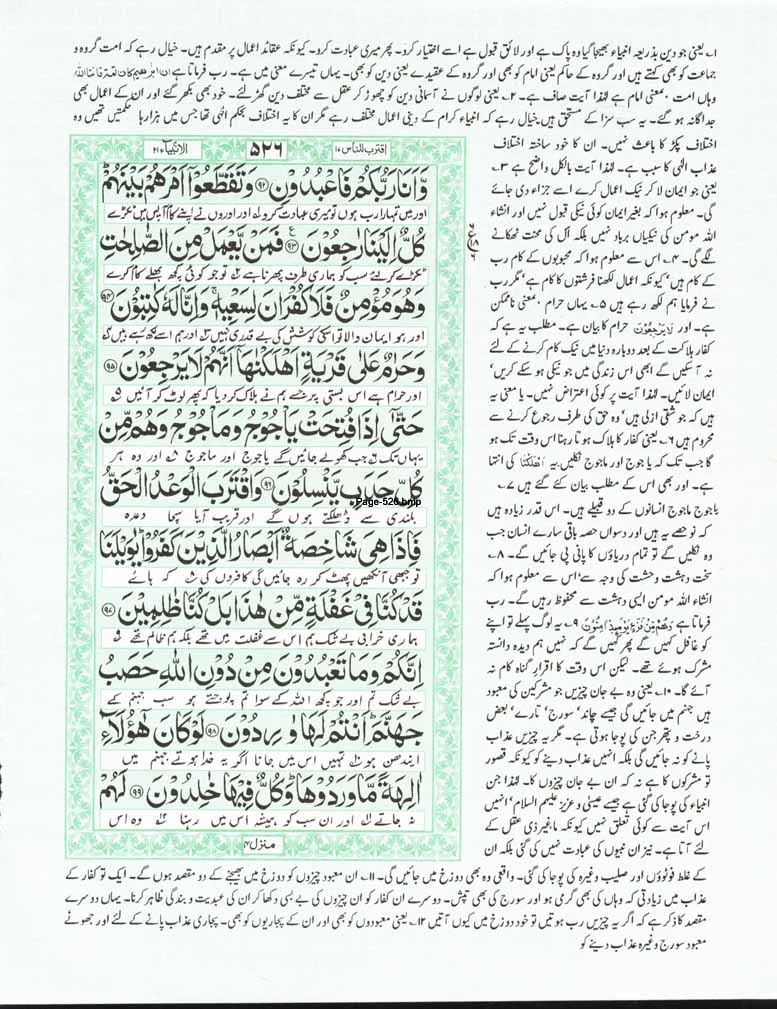 ۱۔ یعنی جو دین بذریعہ انبیاء بھیجا گیا وہ پاک ہے اور لائق قبول ہے اسے اختیار کرو۔ پھر میری عبادت کرو۔ کیونکہ عقائد اعمال پر مقدم ہیں۔ خیال رہے کہ امت گروہ و
جماعت کو بھی کہتے ہیں اور گروہ کے حاکم یعنی امام کو بھی اور گروہ کے عقیدے یعنی دین کو بھی۔ یہاں تیسرے معنی میں ہے۔ رب فرماتا ہے ان ابرٰھیم کان امة قانتا للہ
وہاں امت بمعنی امام ہے لہٰذا آیت صاف ہے۔ ۲۔ یعنی لوگوں نے آسمانی دین کو چھوڑ کر عقل سے مختلف دین گھڑ لئے۔ خود بھی بکھر گئے اور ان کے اعمال بھی
جداگانہ ہو گئے۔ یہ سب سزا کے مستحق ہیں خیال رہے کہ انبیاء کرام کے دینی اعمال مختلف رہے مگر ان کا یہ اختلاف بحکم الٰہی تھا جس میں ہزارہا حکمتیں تھیں وہ
اقترب للناس ۱۷
۵۲۶
الانبیاء ۲۱
وَّاَنَا رَبُّكُمْ فَاعْبُدُوْنِ ﴿۹۲﴾ وَتَقَطَّعُوْٓا اَمْرَهُمْ بَيْنَهُمْ ۖ
اور میں تمہارا رب ہوں تو میری عبادت کرو اور اوروں نے اپنے کام آپس میں ٹکڑے
كُلٌّ اِلَيْنَا رٰجِعُوْنَ ﴿۹۳﴾ فَمَنْ يَّعْمَلْ مِنَ الصّٰلِحٰتِ
ٹکڑے کر لئے سب کو ہماری طرف پھرنا ہے تو جو کوئی کچھ بھلے کام کرے
وَهُوَ مُؤْمِنٌ فَلَا كُفْرَانَ لِسَعْيِهٖ ۚ وَاِنَّا لَهٗ كٰتِبُوْنَ ﴿۹۴﴾
اور ہو ایمان والا تو اس کی کوشش کی بے قدری نہیں اور ہم اسے لکھ رہے ہیں
وَحَرٰمٌ عَلٰى قَرْيَةٍ اَهْلَكْنٰهَآ اَنَّهُمْ لَا يَرْجِعُوْنَ ﴿۹۵﴾
اور حرام ہے اس بستی پر جسے ہم نے ہلاک کر دیا کہ پھر لوٹ کر آئیں
حَتّٰٓى اِذَا فُتِحَتْ يَاْجُوْجُ وَمَاْجُوْجُ وَهُمْ مِّنْ
یہاں تک کہ جب کھولے جائیں گے یاجوج اور ماجوج اور وہ ہر
كُلِّ حَدَبٍ يَّنْسِلُوْنَ ﴿۹۶﴾ وَاقْتَرَبَ الْوَعْدُ الْحَقُّ
Page-526.bmp
بلندی سے ڈھلکتے ہوں گے اور قریب آیا سچا وعدہ
فَاِذَا هِيَ شَاخِصَةٌ اَبْصَارُ الَّذِيْنَ كَفَرُوْا ؕ يٰوَيْلَنَا
تو جبھی آنکھیں پھٹ کر رہ جائیں گی کافروں کی کہ ہائے
قَدْ كُنَّا فِيْ غَفْلَةٍ مِّنْ هٰذَا بَلْ كُنَّا ظٰلِمِيْنَ ﴿۹۷﴾
ہماری خرابی بے شک ہم اس سے غفلت میں تھے بلکہ ہم ظالم تھے
اِنَّكُمْ وَمَا تَعْبُدُوْنَ مِنْ دُوْنِ اللّٰهِ حَصَبُ
بے شک تم اور جو کچھ اللہ کے سوا تم پوجتے ہو سب جہنم کے
جَهَنَّمَ ؕ اَنْتُمْ لَهَا وٰرِدُوْنَ ﴿۹۸﴾ لَوْ كَانَ هٰٓؤُلَآءِ
ایندھن ہو تمہیں اس میں جانا اگر یہ خدا ہوتے جہنم میں
اٰلِهَةً مَّا وَرَدُوْهَا ؕ وَكُلٌّ فِيْهَا خٰلِدُوْنَ ﴿۹۹﴾ لَهُمْ
نہ جاتے اور ان سب کو ہمیشہ اس میں رہنا وہ اس
منزل ۴
اختلاف پکڑ کا باعث نہیں۔ ان کا خود ساختہ اختلاف
عذاب الٰہی کا سبب ہے۔ لہٰذا آیت بالکل واضح ہے ۳۔
یعنی جو ایمان لا کر نیک اعمال کرے اسے جزاء دی جائے
گی۔ معلوم ہوا کہ بغیر ایمان کوئی نیکی قبول نہیں اور انشاء
اللہ مومن کی نیکیاں برباد نہیں بلکہ اُس کی محنت ٹھکانے
لگے گی۔ ۴۔ اس سے معلوم ہوا کہ محبوبوں کے کام رب
کے کام ہیں، کیونکہ اعمال لکھنا فرشتوں کا کام ہے، مگر رب
نے فرمایا ہم لکھ رہے ہیں ۵۔ یہاں حرام بمعنی ناممکن
ہے۔ اور لا یرجعون حرام کا بیان ہے۔ مطلب یہ ہے کہ
کفار ہلاکت کے بعد دوبارہ دنیا میں نیک کام کرنے کے لئے
نہ آ سکیں گے ابھی اس زندگی میں جو نیکی ہو سکے کریں،
ایمان لائیں۔ لہٰذا آیت پر کوئی اعتراض نہیں۔ یا معنی یہ
ہیں کہ جو شقی ازلی ہیں، وہ حق کی طرف رجوع کرنے سے
محروم ہیں ۶۔ یعنی کفار کا ہلاک ہوتا رہنا اس وقت تک ہو
گا جب تک کہ یاجوج اور ماجوج نکلیں یہ اھلکنا کی انتہا
ہے۔ اور بھی اس کے مطلب بیان کئے گئے ہیں ۷۔
یاجوج ماجوج انسانوں کے دو قبیلے ہیں۔ اس قدر زیادہ ہیں
کہ نو حصے یہ ہیں اور دسواں حصہ باقی سارے انسان جب
وہ نکلیں گے تو تمام دریاؤں کا پانی پی جائیں گے۔ ۸۔
سخت دہشت و حشت کی وجہ سے، اس سے معلوم ہوا کہ
انشاء اللہ مومن ایسی دہشت سے محفوظ رہیں گے۔ رب
فرماتا ہے وھم من فزع یومئذ اٰمنون ۹۔ یہ لوگ پہلے تو اپنے
کو غافل کہیں گے پھر کہیں گے کہ نہیں ہم دیدہ دانستہ
مشرک ہوئے تھے۔ لیکن اس وقت کا اقرار گناہ کام نہ
آئے گا۔ ۱۰۔ یعنی وہ بے جان چیزیں جو مشرکین کی معبود
ہیں جہنم میں جائیں گی جیسے چاند، سورج، تارے، بعض
درخت و پتھر جن کی پوجا ہوتی ہے۔ مگر یہ چیزیں عذاب
پانے کو نہ جائیں گی بلکہ انہیں عذاب دینے کو کیونکہ قصور
تو مشرکوں کا ہے نہ کہ ان بے جان چیزوں کا۔ لہٰذا جن
انبیاء کی پوجا کی گئی ہے جیسے عیسیٰ و عزیر علیہم السلام، انہیں
اس آیت سے کوئی تعلق نہیں کیونکہ ما غیر ذی عقل کے
لئے آتا ہے۔ نیز ان نبیوں کی عبادت نہیں کی گئی بلکہ ان
کے غلط فوٹوؤں اور صلیب وغیرہ کی پوجا کی گئی۔ واقعی وہ بھی دوزخ میں جائیں گی۔ ۱۱۔ ان معبود چیزوں کو دوزخ میں بھیجنے کے دو مقصد ہوں گے۔ ایک تو کفار کے
عذاب میں زیادتی کہ وہاں کی بھی گرمی ہو اور سورج کی بھی تپش۔ دوسرے ان کفار کو ان چیزوں کی بے بسی دکھا کر ان کی عبدیت و بندگی ظاہر کرنا۔ یہاں دوسرے
مقصد کا ذکر ہے کہ اگر یہ چیزیں رب ہوتیں تو خود دوزخ میں کیوں آتیں ۱۲۔ یعنی معبودوں کو بھی اور ان کے پجاریوں کو بھی۔ پجاری عذاب پانے کے لئے اور جھوٹے
معبود سورج وغیرہ عذاب دینے کو